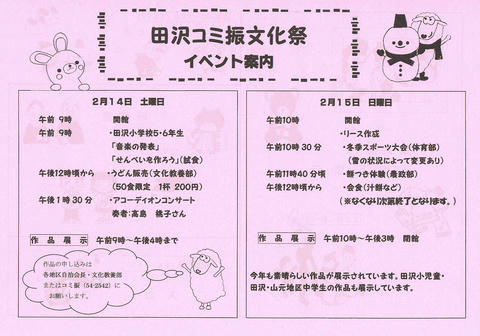 田沢コミ振文化祭
イベント案内
2月14日 土曜日
午前 9時 開館
午前 9時 ・田沢小学校5・6年生
「音楽の発表」
「せんべいを作ろう」(試食)
午後12時頃から ・うどん販売(文化教養部)
(50食限定 1杯 200円)
午後1時30分 ・アコーディオンコンサート
奏者:高島 桃子さん
作品展示 午前9時~午後4時まで
作品の申し込みは
各地区自治会長・文化教養部
またはコミ振(54-2542)に
お願いします。
2月15日 日曜日
午前10時 開館
・リース作成
午前10時30分 ・冬季スポーツ大会(体育部)
(雪の状況によって変更あり)
午前11時40分頃 ・餅つき体験(農政部)
午後12時頃から ・会食(汁餅など)
(※なくなり次第終了となります。)
作品展示 午前10時~午後3時 閉館
今年も素晴らしい作品が展示されています。田沢小児童・
田沢・山元地区中学生の作品も展示しています。